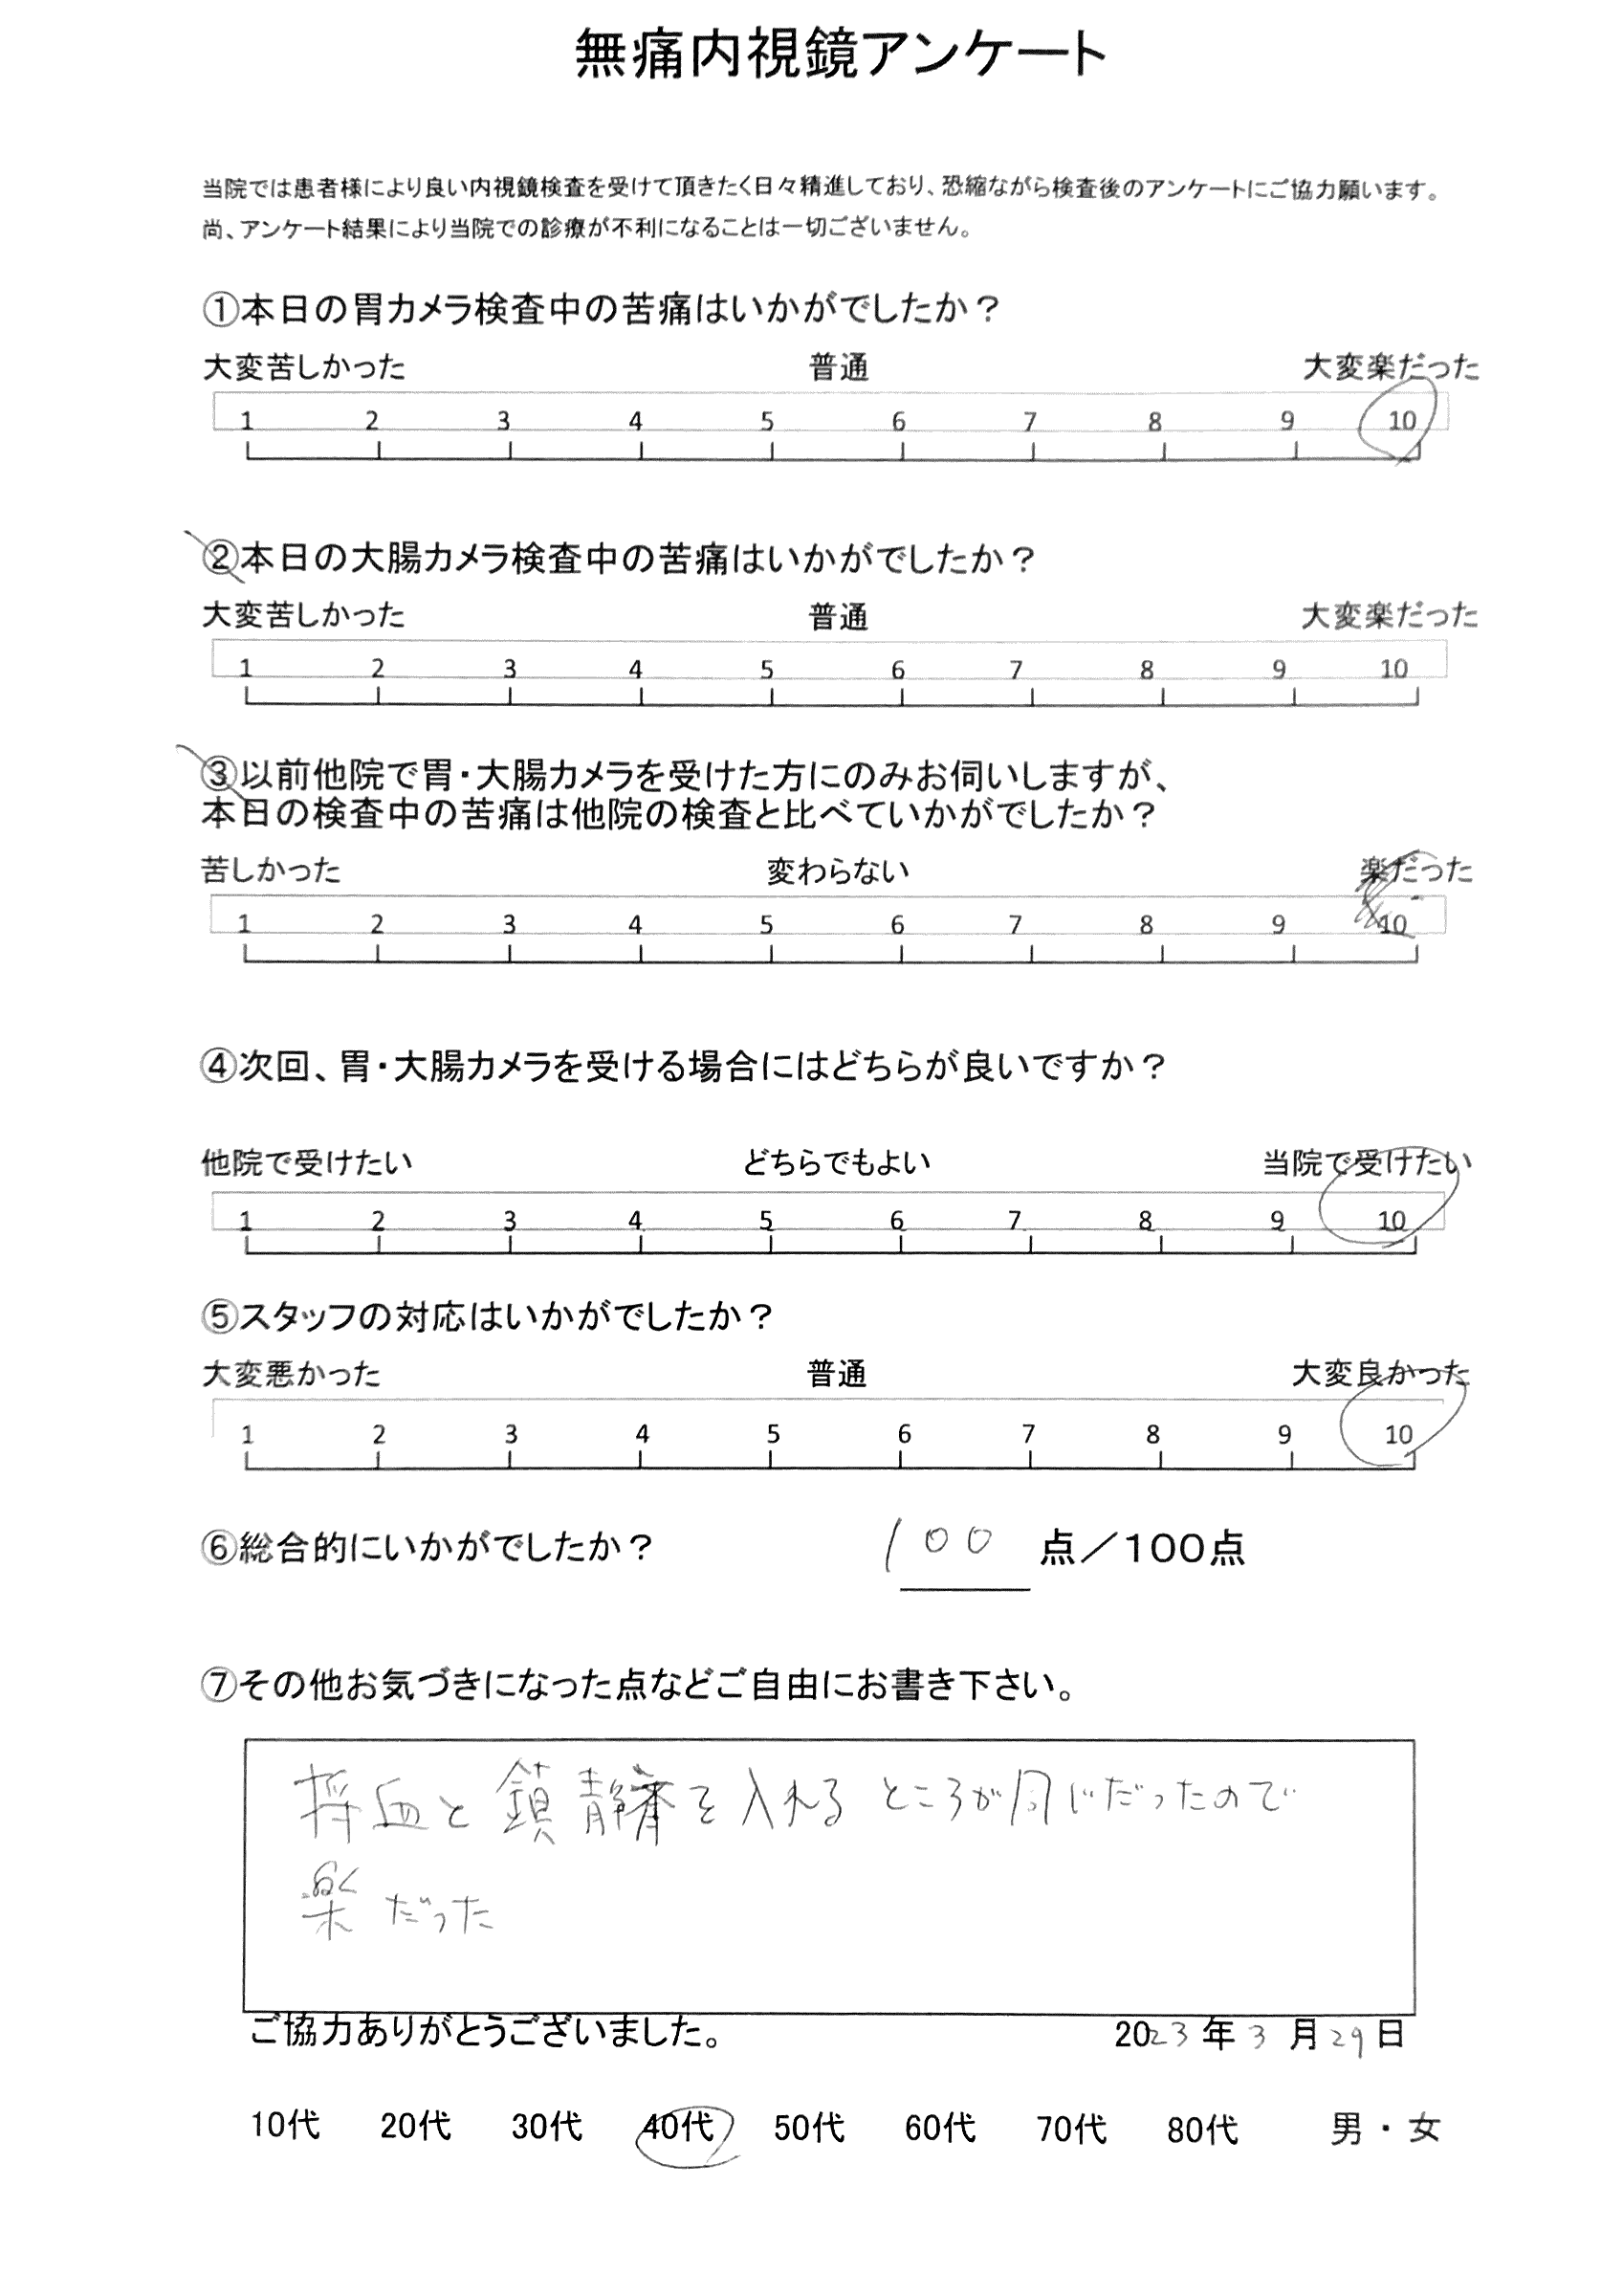 無痛内視鏡アンケート
当院では患者様により良い内視鏡検査を受けて頂きたく日々精進しており、恐縮ながら検査後のアンケートにご協力願います。
尚、アンケート結果により当院での診療が不利になることは一切ございません。
①本日の胃カメラ検査中の苦痛はいかがでしたか？
大変苦しかった 普通 大変楽だった
1 2 3 4 5 6 7 8 9 10
②本日の大腸カメラ検査中の苦痛はいかがでしたか？
大変苦しかった 普通 大変楽だった
1 2 3 4 5 6 7 8 9 10
③以前他院で胃・大腸カメラを受けた方にのみお伺いしますが、
本日の検査中の苦痛は他院の検査と比べていかがでしたか？
苦しかった 変わらない 楽だった
1 2 3 4 5 6 7 8 9 10
④次回、胃・大腸カメラを受ける場合にはどちらが良いですか？
他院で受けたい どちらでもよい 当院で受けたい
1 2 3 4 5 6 7 8 9 10
⑤スタッフの対応はいかがでしたか？
大変悪かった 普通 大変良かった
1 2 3 4 5 6 7 8 9 10
⑥総合的にいかがでしたか？ 100 点／100点
⑦その他お気づきになった点などご自由にお書き下さい。
血と鎮静を入れるところが同じだったので
楽だった
ご協力ありがとうございました。 2023年3月29日
10代 20代 30代 40代 50代 60代 70代 80代 男・女